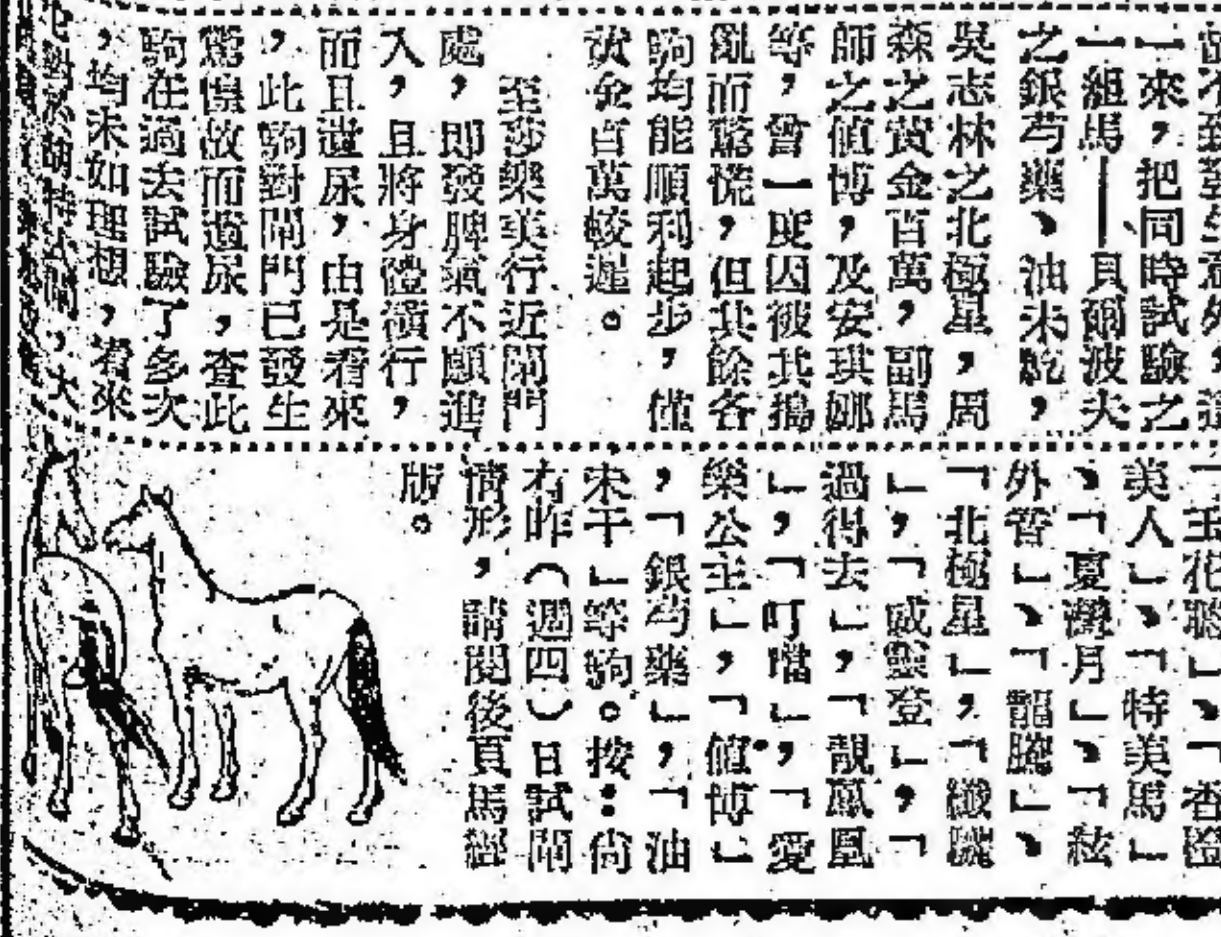 一來，把同時試驗之
一組馬——貝爾波夫
之銀芍藥、油未乾，
吳志林之北極星，周
森之黃金百萬，副馬
師之值博，及安琪娜
等，曾一度因被其搗
亂而驚慌，但其餘各
駒均能順利起步，僅
黃金百萬較遲。
至莎樂美行近閘門
處，即發脾氣不願進
入，且將身體橫行，
而且遺尿，由是看來
，此駒對閘門已發生
驚惶故而遺尿，查此
駒在過去試驗了多次
，均未如理想，看來
對於胡特式閘，大
「玉花驄」、「香檳
美人」、「特美馬」
、「夏灣月」、「絃
外管」、「韶騰」、
「北極星」，「纖驪
」，「威靈登」，「
過得去」，「靚鳳凰
」，「叮噹」，「愛
樂公主」，「值博」
，「銀芍藥」，「油
未干」等駒。按：尚
有昨（週四）日試閘
情形，請閱後頁馬經
版。